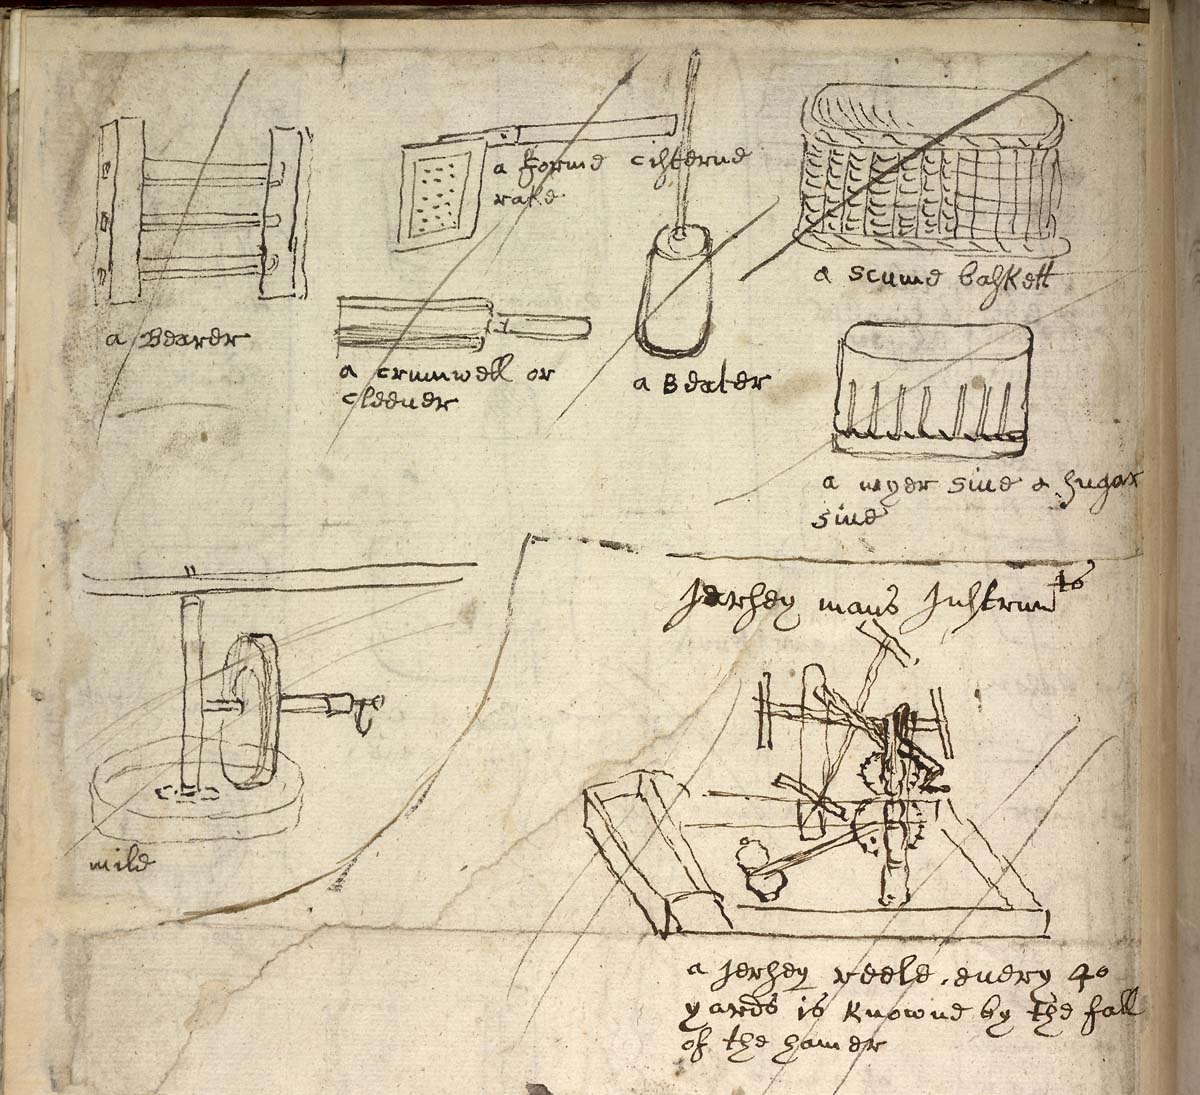 a forme cisterne
rake
a scume baskett
a Bearer
a crumwell or
cleener
a Beater
a wyer sive a sugar
sive
Jersey mans Instrumts
mile
a Jersey reele. every 40
yards is knowne by the fall
of the hamer